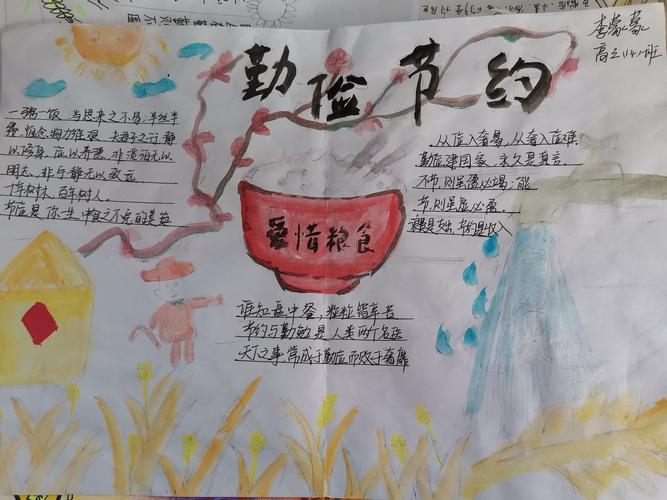 李蒙蒙
高三1141班
勤俭节约
一粥一饭,当思来之不易;半丝半
缕,恒念物力维艰 夫君子之行,静
以修身,俭以养德,非淡泊无以
明志,非宁静无以致远
十年树木,百年树人。
节俭是你一生中食之不完的美筵
从俭入奢易,从奢入俭难
勤俭建国家,永久是真言。
不节,则虽盈必竭;
节,则虽虚必盈。
爱惜粮食
谁知盘中餐,粒粒皆辛苦
节约与勤勉是人类两个名医
天下之事,常成于勤俭而败于奢靡